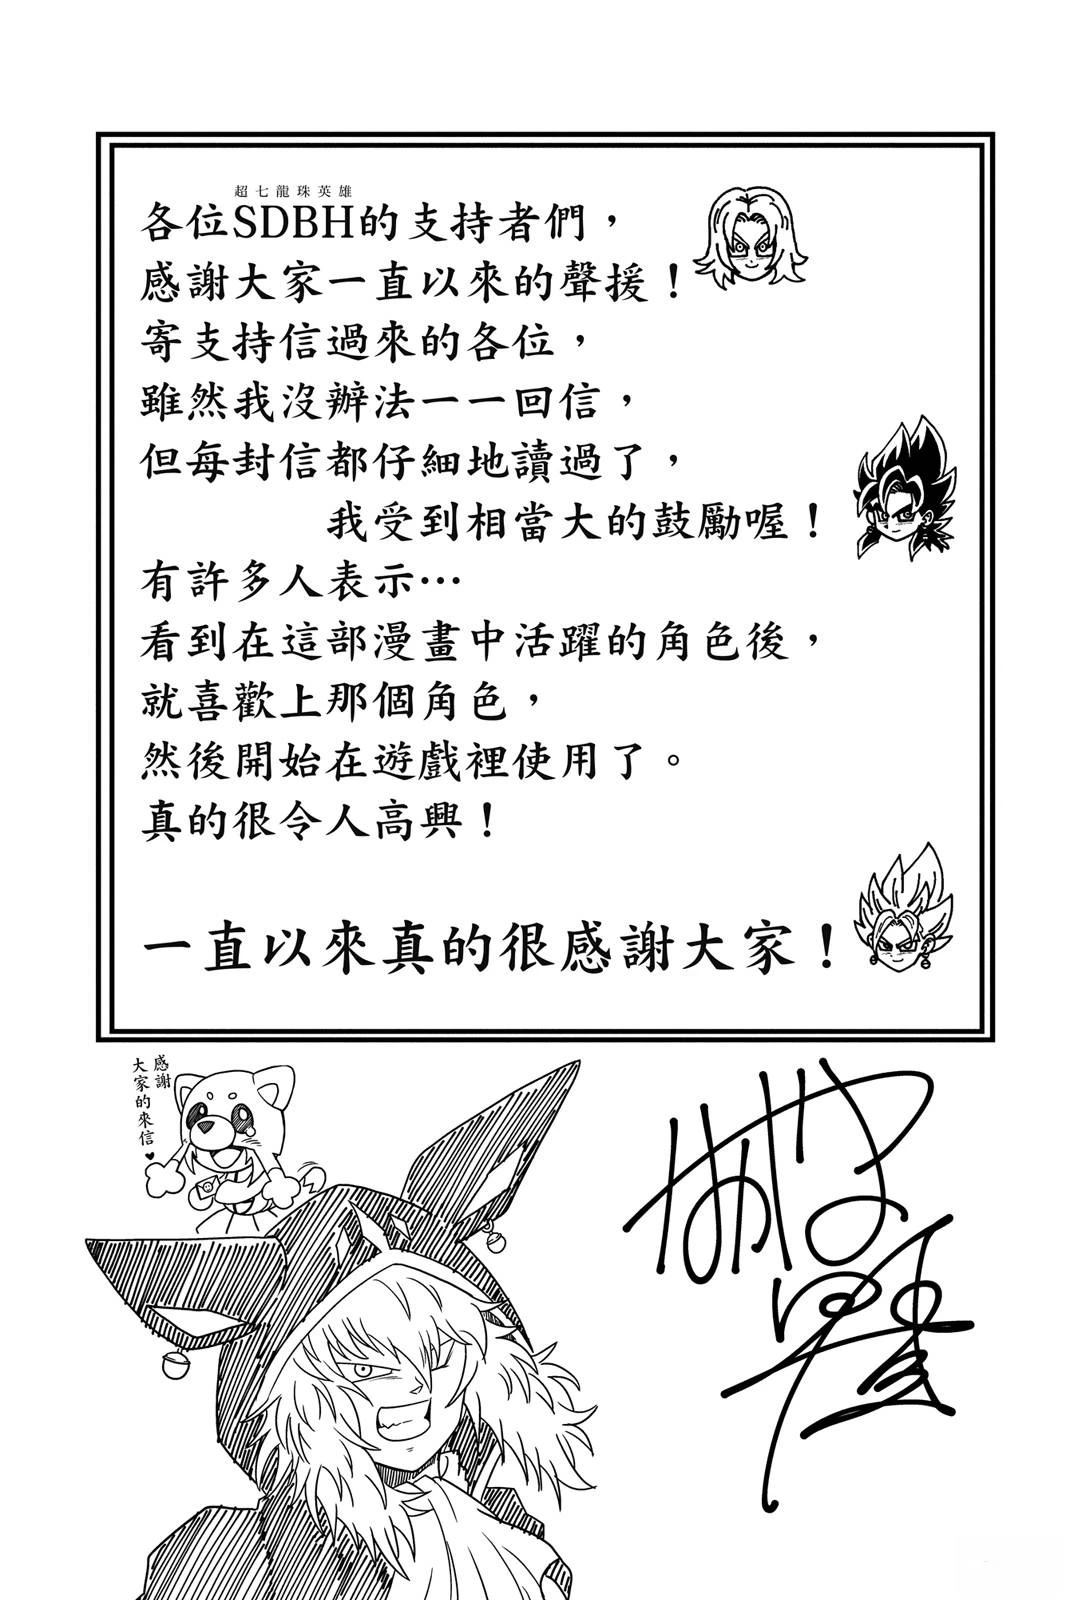 超七龍珠英雄
各位SDBH的支持者們，
感謝大家一直以來的聲援！
寄支持信過來的各位，
雖然我沒辦法一一回信，
但每封信都仔細地讀過了，
我受到相當大的鼓勵喔！
有許多人表示…
看到在這部漫畫中活躍的角色後，
就喜歡上那個角色，
然後開始在遊戲裡使用了。
真的很令人高興！
一直以來真的很感謝大家！
感謝
大家的來信♥